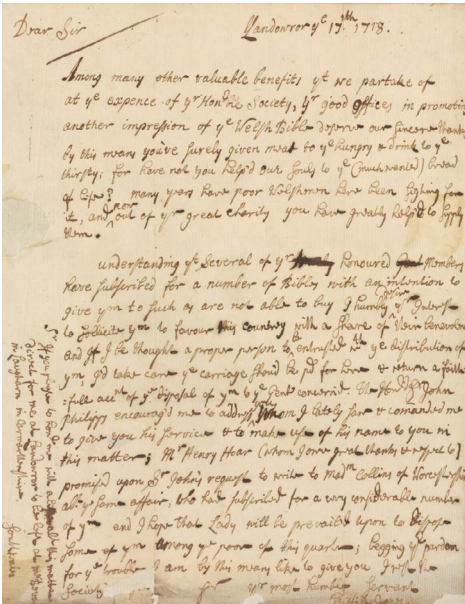 Dear Sir
Landowror yᵉ 17th 1718.
Among many other valuable benefits yt we partake of
at yᵉ expence of yr Honble Society, yr good offices in promoting
another impression of yᵉ Welsh Bible deserve our sincere thanks
by this means you've surely given meat to yᵉ hungry & drink to yᵉ
thirsty; for have not you help'd our souls to yᵉ (much wanted) bread
of life? many years have poor Welshmen here been sighing for
it, and now out of yr great charity you have greatly help'd to supply
them.
understanding yt several of yr honoured Members
have subscribed for a number of Bibles with an intention to
give ym to such as are not able to buy I humbly desire yr Interest
to sollicite ym to favour this country with a share of their benevolence
and if I be thought a proper person to be entrusted wth yᵉ distribution of
ym, I'd take care yᵉ carriage should be pd for here & return a faith-
-full acct of yᵉ disposal of ym to yᵉ Gent concern'd. The Honble Sr John
Philipps encourag'd me to address whom I lately saw & comanded me
to give you his service & to make use of his name to you in
this matter; Mr Henry Hoar (whom I owe great thanks & respect to)
promised upon Sr John's request to write to Madm Collins of Worcestershire
abt yᵉ same affair, who had subscribed for a very considerable number
of ym and I hope that Lady will be prevailed upon to dispose
some of ym among yᵉ poor of this quarter; begging yr pardon
for yᵉ trouble I am by this means like to give you I rest the
Society
Sir yr most humble Servant
If you please to
direct for me at Landowror to be left at
in Laugharn in Carmarthenshire
Southwales